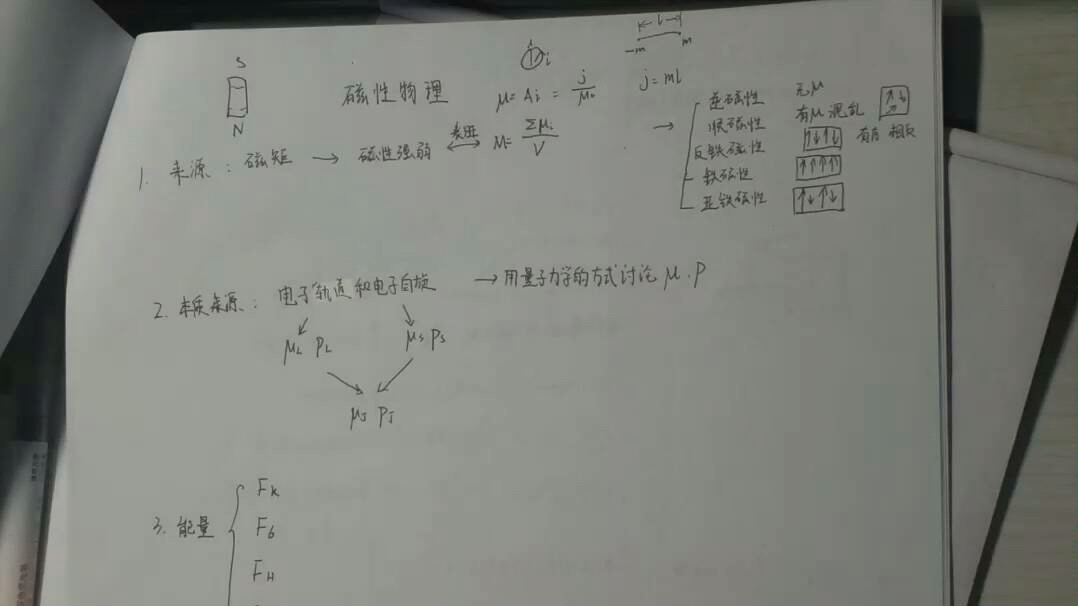 S
N
磁性物理
i
μ = Ai = j/μ₀
l
-m m
j = ml
1. 来源：磁矩 → 磁性强弱 ⟷ 表征 M = ΣMi/V
→ 逆磁性 无μ
顺磁性 有μ 混乱
反铁磁性 ↑↓↑↓ 相反
铁磁性 ↑↑↑↑
亚铁磁性 ↑↓↑↓
2. 本质来源：电子轨道和电子自旋 → 用量子力学的方式讨论 μ.P
μL PL μs Ps
μJ PJ
3. 能量
FK
F6
FH